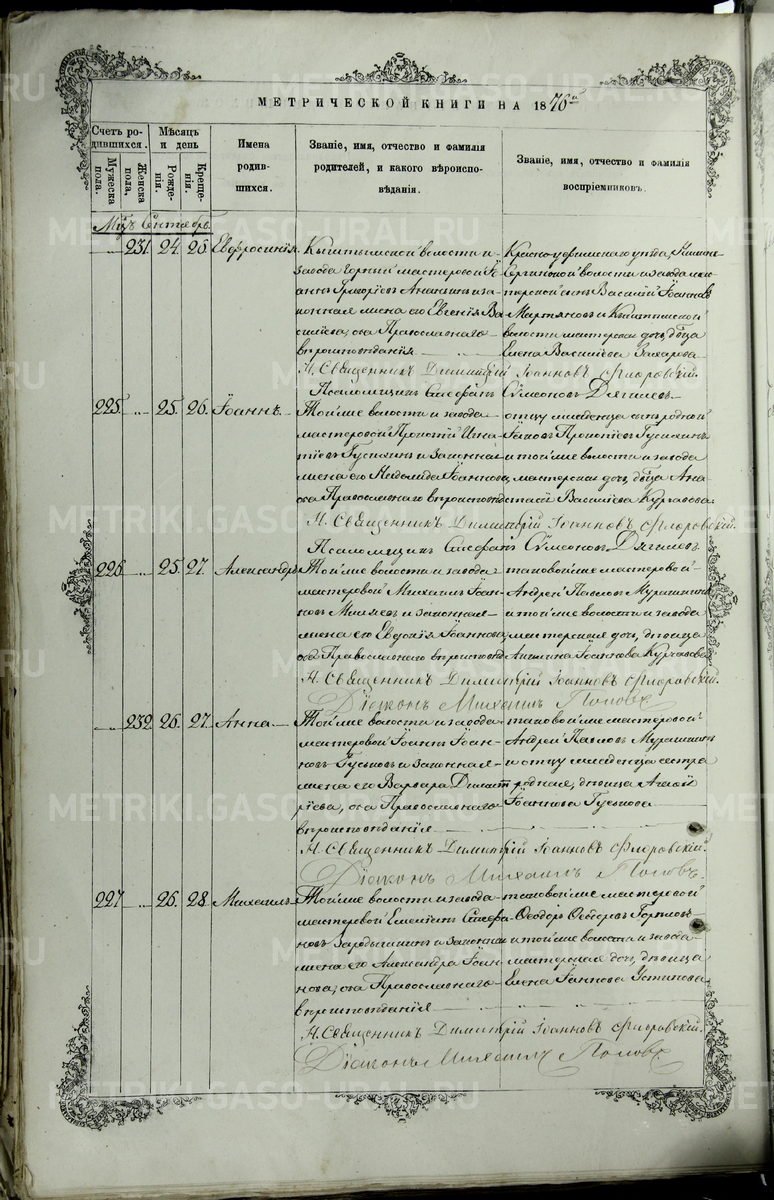 МЕТРИЧЕСКОЙ КНИГИ НА 1876й
Счетъ ро-
дившихся.
Мужеска
пола.
Женска
пола,
Мѣсяцъ
и день
Рожде-
нія.
Креще-
нія.
Имена
родив-
шихся.
Званіе, имя, отчество и фамилія
родителей, и какого вѣроиспо-
вѣданія.
Званіе, имя, отчество и фамилія
воспріемниковъ.
Сентябрь.
231. 24. 25. Евфросинія.
Кыштымской волости и
завода горный мастеровой Іо-
аннъ Григорьевъ и за-
конная жена его Евгенія Ва-
сильева, оба Православнаго
вѣроисповѣданія
Красноуфимскаго уѣзда,
Сергинской волости и завода мас-
терской сынъ Василій Іоанновъ
Мартяновъ и Кыштымской
волости мастерская дочь, дѣвица
Елена Васильева Захарова
Н. Священникъ Димитрій Іоанновъ Флоровскій.
Псаломщикъ Стефанъ Сѵмеоновъ Дягилевъ
225. „ 25. 26. Іоаннъ.
Той же волости и завода
мастеровой Прокопій Игна-
тіевъ Гуськинъ и законная
жена его Іоаннова,
оба Православнаго вѣроисповѣд
отцу младенца сынъ родной
Іаковъ Прокопіевъ Гуськинъ
и той же волости и завода
мастерская дочь, дѣвица Ана-
стасія Васильева Курчавова
Н. Священникъ Димитрій Іоанновъ Флоровскій.
Псаломщикъ Стефанъ Сѵмеоновъ Дягилевъ
226. „ 25. 27. Александръ
Той же волости и завода
мастеровой Михаилъ Іоан-
новъ и законная
жена его Евдокія Іоаннова,
оба Православнаго вѣроисповѣд
таковой же мастеровой
Андрей Павловъ Мурашкинъ
и той же волости и завода
мастерская дочь, дѣвица
Ангелина Іоаннова Курчавова
Н. Священникъ Димитрій Іоанновъ Флоровскій.
Діаконъ Михаилъ Поповъ
„ 232. 26. 27. Анна
Той же волости и завода
мастеровой Іоаннъ Іоан-
новъ Гуськовъ и законная
жена его Варвара Димит-
ріева, оба Православнаго
вѣроисповѣданія
таковой же мастеровой
Андрей Павловъ Мурашкинъ
и отцу младенца сестра
родная, дѣвица
Іоаннова Гуськова
Н. Священникъ Димитрій Іоанновъ Флоровскій.
Діаконъ Михаилъ Поповъ.
227. „ 26. 28. Михаилъ
Той же волости и завода
мастеровой Емеліанъ Стефа-
новъ и законная
жена его Александра Іоан-
нова, оба Православнаго
вѣроисповѣданія
таковой же мастеровой
Ѳеодоръ Ѳеодоровъ
и той же волости и завода
мастерская дочь, дѣвица
Елена Іаннова Устинова
Н. Священникъ Димитрій Іоанновъ Флоровскій.
Діаконъ Михаилъ Поповъ
METRIKI.GASO-URAL.RU